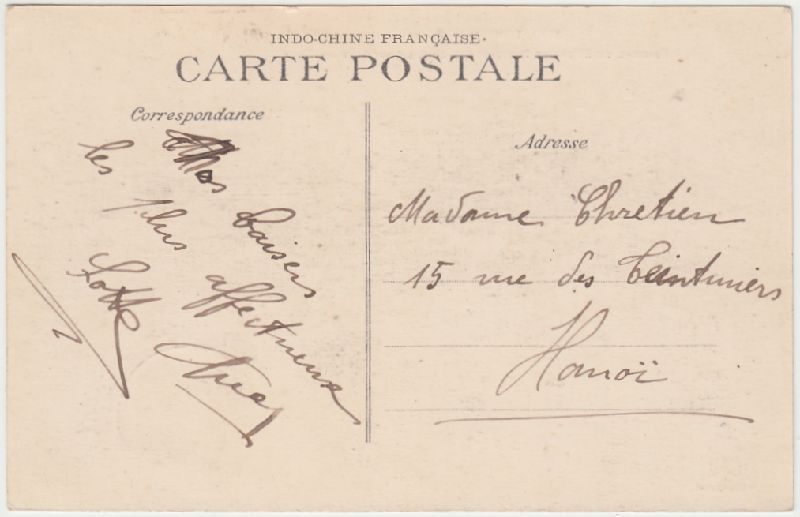 INDO-CHINE FRANÇAISE.
CARTE POSTALE
Correspondance
Mos baisers
les plus affectueux
Lotte
Adresse
Madame Chretien
15 rue des Teinturiers
Hanoï